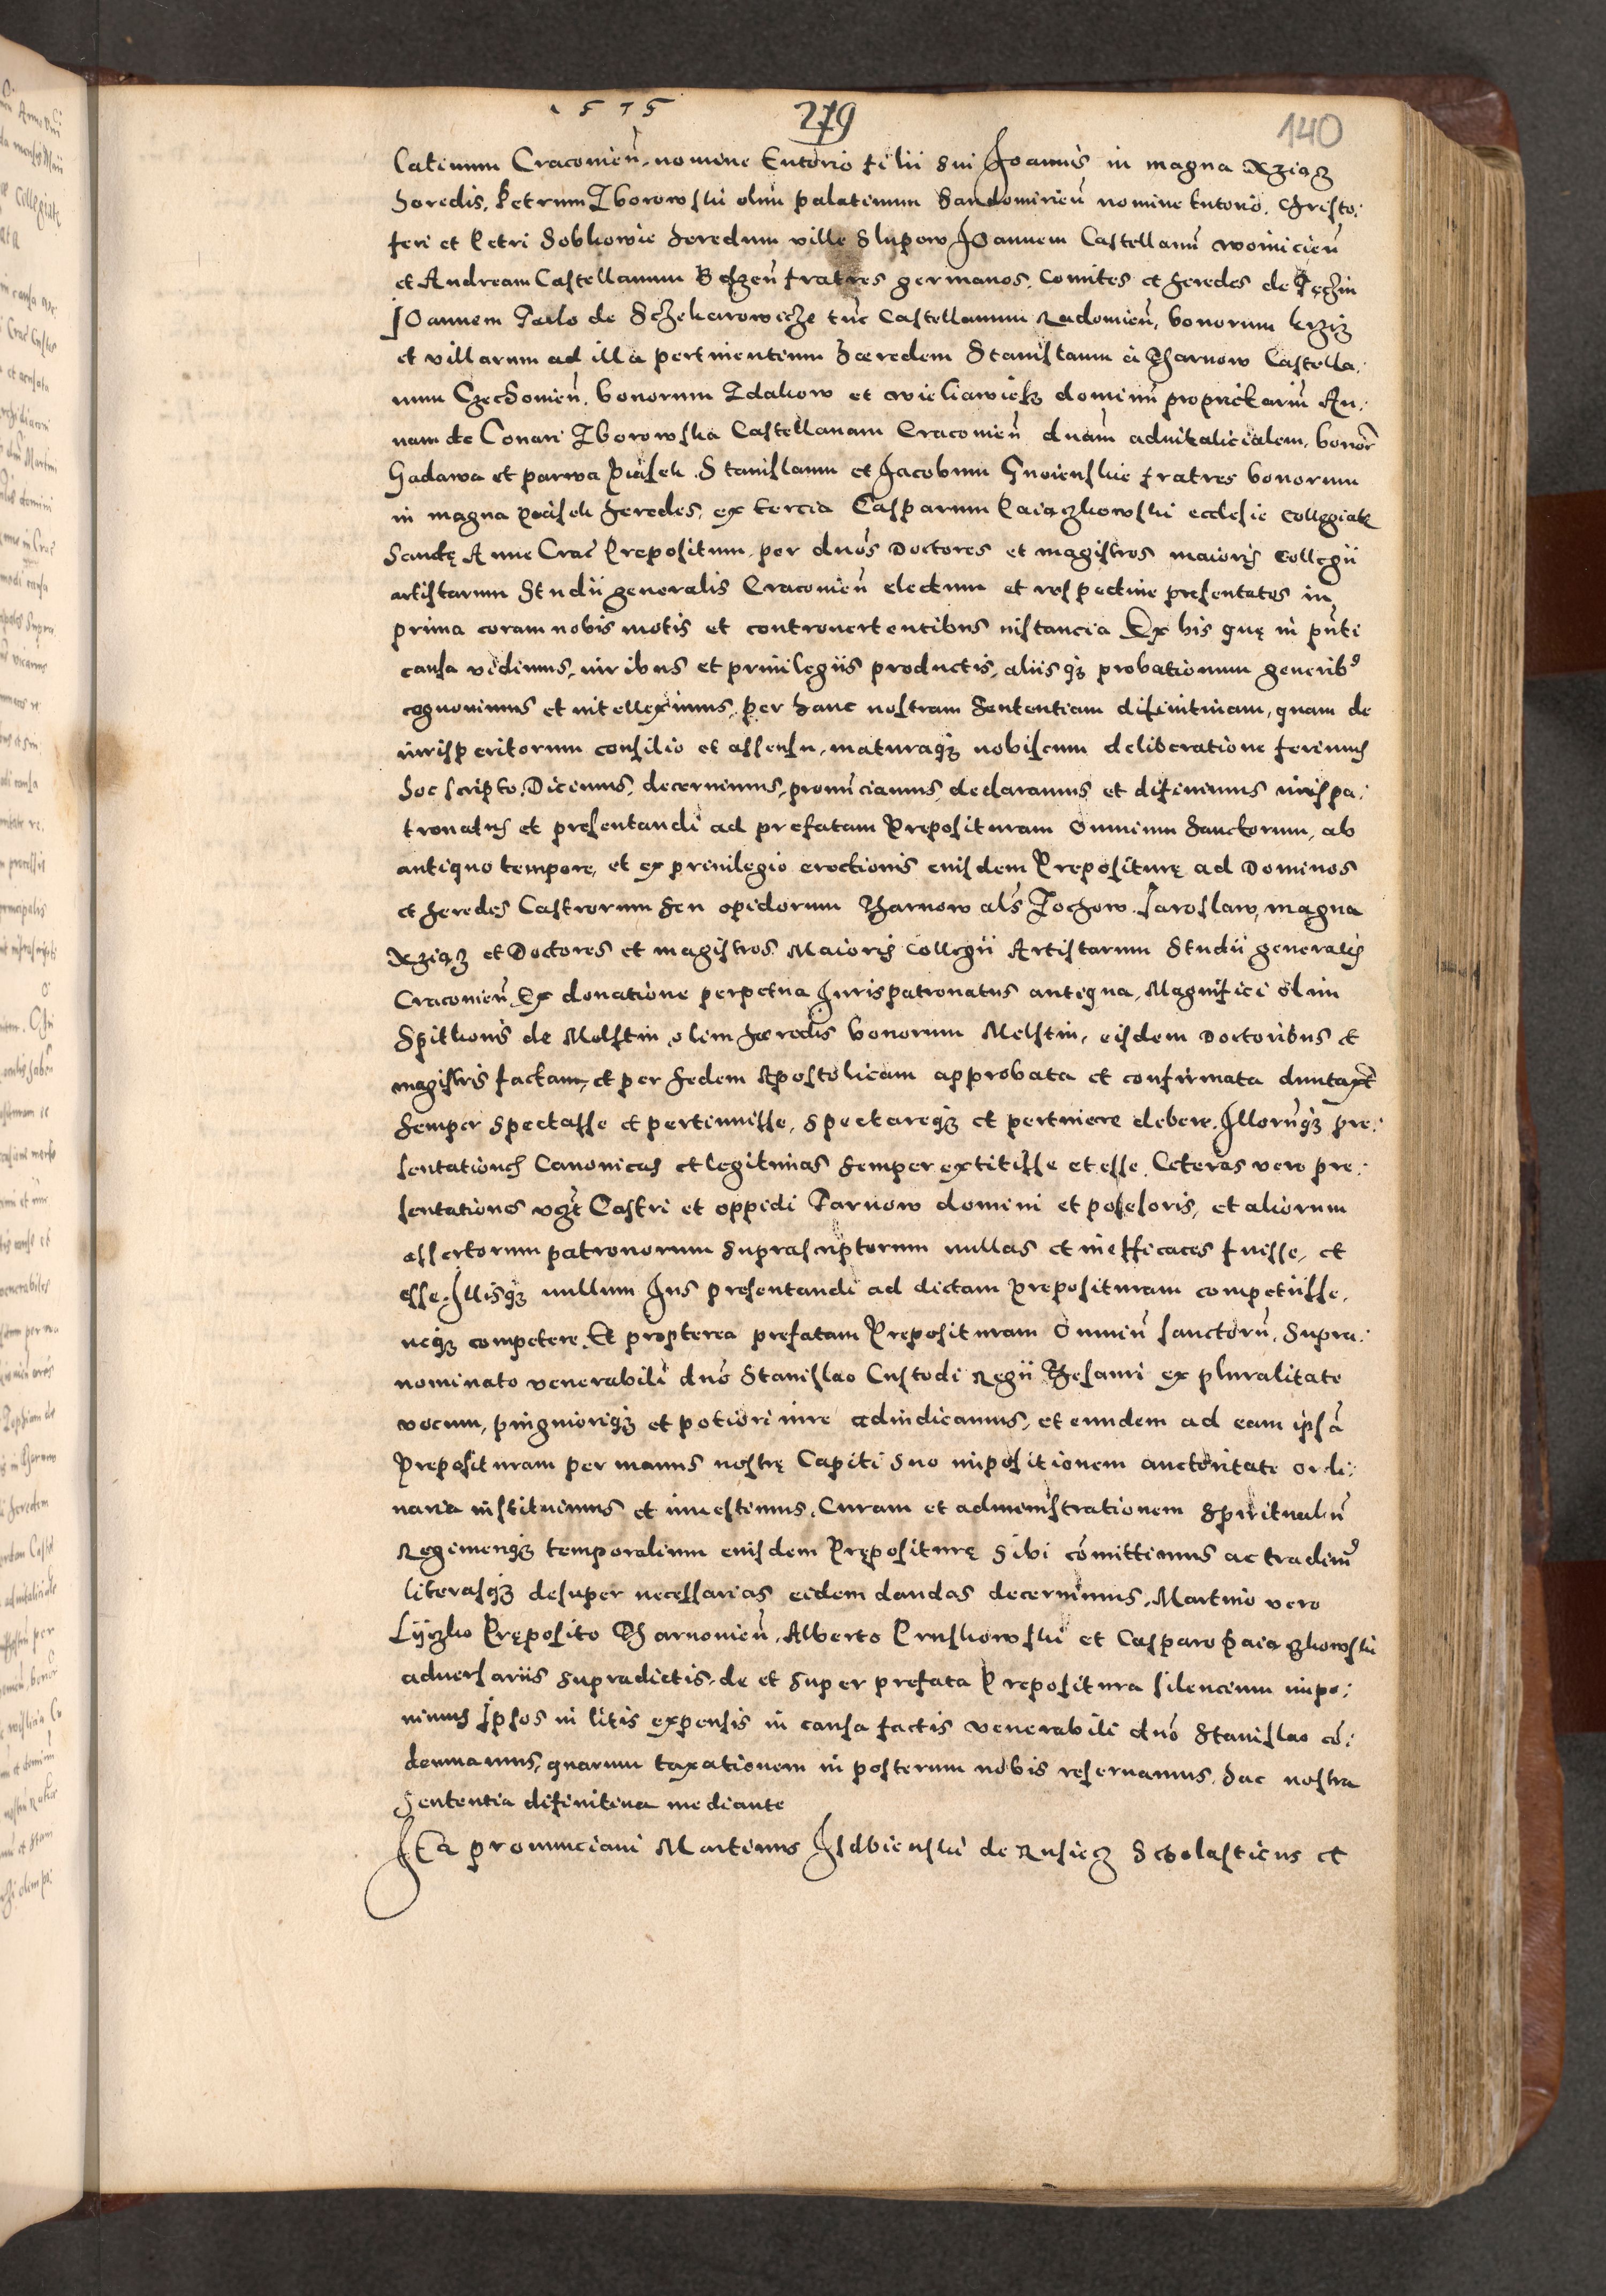 1575
279
140
latinum Cracovien̄. nomine tutorio filii sui Joannis in magna Xziąz
heredis, Petrum Zborowski olim palatinum Sandomirien̄ nomine tutorio. Christo:
feri et Petri Sobkowie heredum ville Slupow Joannem Castellanū woinicien̄
et Andream Castellanum Belzen̄ fratres germanos. Comites et heredes de Tęczin
Joannem Tarlo de Sczekarowicze tūc Castellanum Radomien̄, bonorum
et villarum ad illa pertinentium hæredem Stanislaum à Tharnow Castella:
num Czechonien̄. bonorum Zdakow et dominū proprietariū An:
nam de Conari Zborowska Castellanam Cracovien̄ dnām advitalicialem. bonor̄
Gadawa et parwa Piasek. Stanislaum et Jacobum Gnoienskie fratres bonorum
in magna Piasek heredes. ex tercia Casparum Paiączkowski ecclesie Collegiate
Sanctę Anne Crac̄ Prepositum. per dnōs Doctores et magistros maioris Collegii
artistarum Studii generalis Cracovien̄ electum et respective presentatos in
prima coram nobis motis et controvertentibus instancia Ex his quę in pn̄ti
causa vidimus, iuribus et privilegiis productis, aliisq; probationum generib9
cognovimus et intelleximus, per hanc nostram Sententiam difinitivam, quam de
iurisperitorum consilio et assensu, maturaq; nobiscum deliberatione ferimus
hoc scripto, Dicimus, decernimus, pronūciamus, declaramus et difinimus iurispa:
tronatus et presentandi ad prefatam Preposituram Omnium Sanctorum, ab
antiquo tempore, et ex privilegio erectionis eiusdem Prepositurę ad Dominos
et heredes Castrorum seu opidorum Tharnow als̄ Tochow. Jaroslaw, magna
Xziąz et Doctores et magistros Maioris Collegii Artistarum Studii generalis
Cracovien̄. Ex donatione perpetua Jurispatronatus antiqua, Magnifici olim
Spitkonis de Melstin olim hæredis bonorum Melstin, eisdem Doctoribus et
magistris factam, et per sedem Apostolicam approbata et confirmata duntaxt̄
semper spectasse et pertinuisse, spectareq; et pertinere debere. Illorūq; pre:
sentationes Canonicas et legitimas semper extitisse et esse. Ceteras vero pre:
sentationes vcz̄t Castri et oppidi Tarnow domini et posesoris, et aliorum
assertorum patronorum suprascriptorum nullas et inefficaces fuisse, et
esse. Illisq; nullum Jus presentandi ad dictam Preposituram competiisse,
neq; competere. Et propterea prefatam Preposituram Omniū sanctorū. Supra:
nominato venerabili dnō Stanislao Custodi Regii Thesauri ex pluralitate
vocum, pinguioriq; et potiori iure adiudicamus, et eundem ad eam ipsā
Preposituram per manus nostrę Capiti suo impositionem auctoritate ordi:
naria instituimus et investimus. Curam et administrationem Spiritualiū
Regimenq; temporalium eiusdem Pręposituręe sibi cōmittimus ac tradim9
literasq; desuper necessarias eidem dandas decernimus. Martino vero
Lyczko Pręposito Tharnovien̄, Alberto Pruskowski et Casparo Paiączkowski
adversariis supradictis. de et super prefata Prepositura silencium impo:
nimus Ipsos in litis expensis in causa factis venerabili dnō Stanislao cō:
demnamus, quarum taxationem in posterum nobis reservamus. hac nostra
Sententia difinitiva mediante
Ita pronunciavi Martinus Isdbienski de Rusiecz Scholasticus et